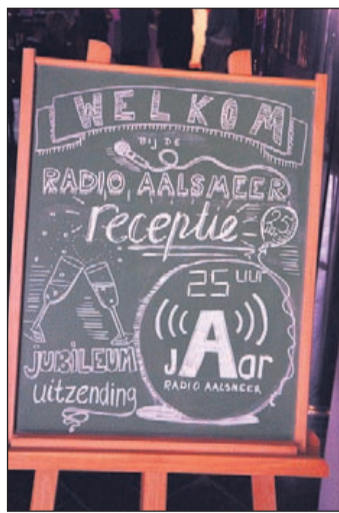 WELKOM
BIJ DE
RADIO AALSMEER
receptie
25
25 uur
jAar
RADIO AALSMEER
JUBILEUM
uitzending